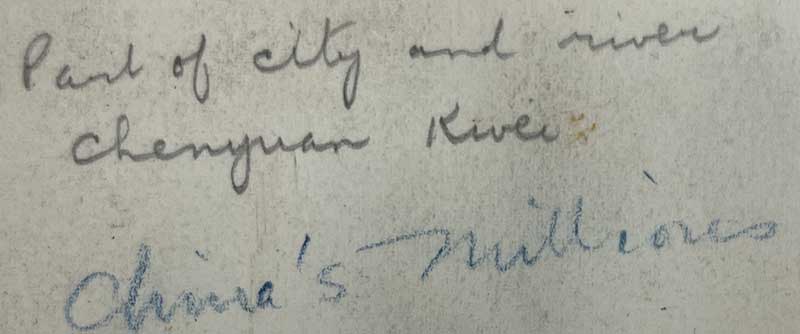 Part of city and river
Chenyuan Kwei
China's Millions